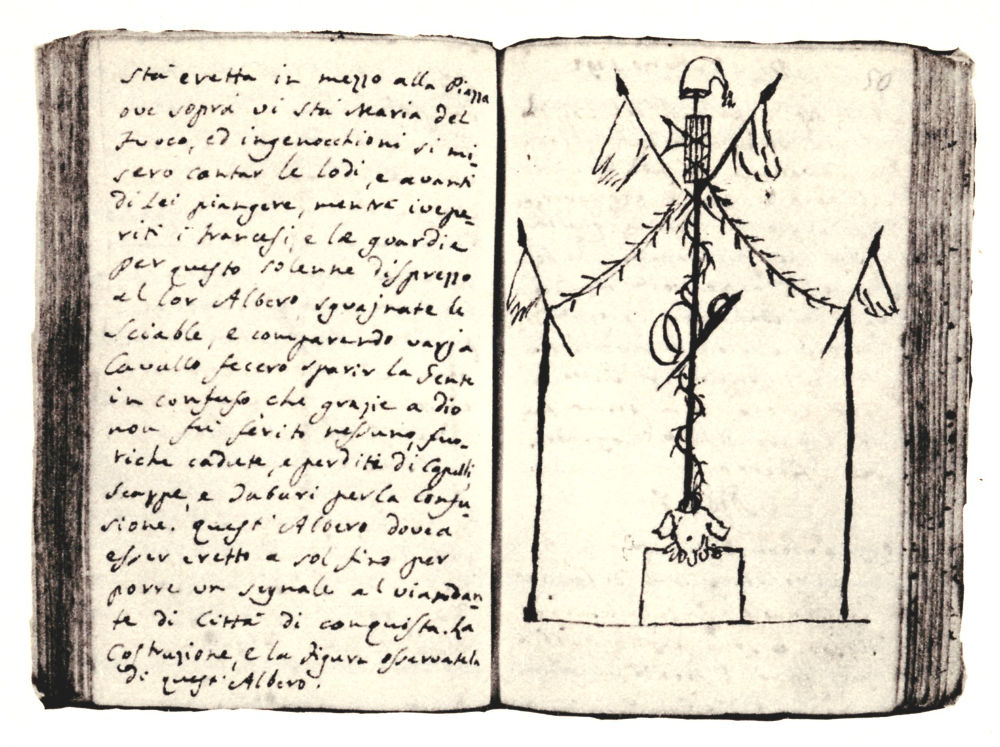 Stà eretta in mezzo alla Piazza
ove sopra vi Stà Maria del
Fuoco, ed ingenocchioni si mi-
sero cantar le lodi, e avanti
di Lei piangere, mentre
riti i francesi, e le guardie
per questo solenne disprezzo
al lor Albero, sguajnate le
Sciable, e comparendo varj a
Cavallo fecero sparir la Gente
in confuso che grazie a dio
non fui ferito nessuno, fuo-
riche cadute, e perdite di Capelli,
scarpe, e Daburi per la Confu-
sione. quest'Albero dovea
esser eretto a sol fino per
porre un segnale al viandan-
te di Città di conquista. La
Costruzione, e la figura osservatela
di quest'Albero.
50